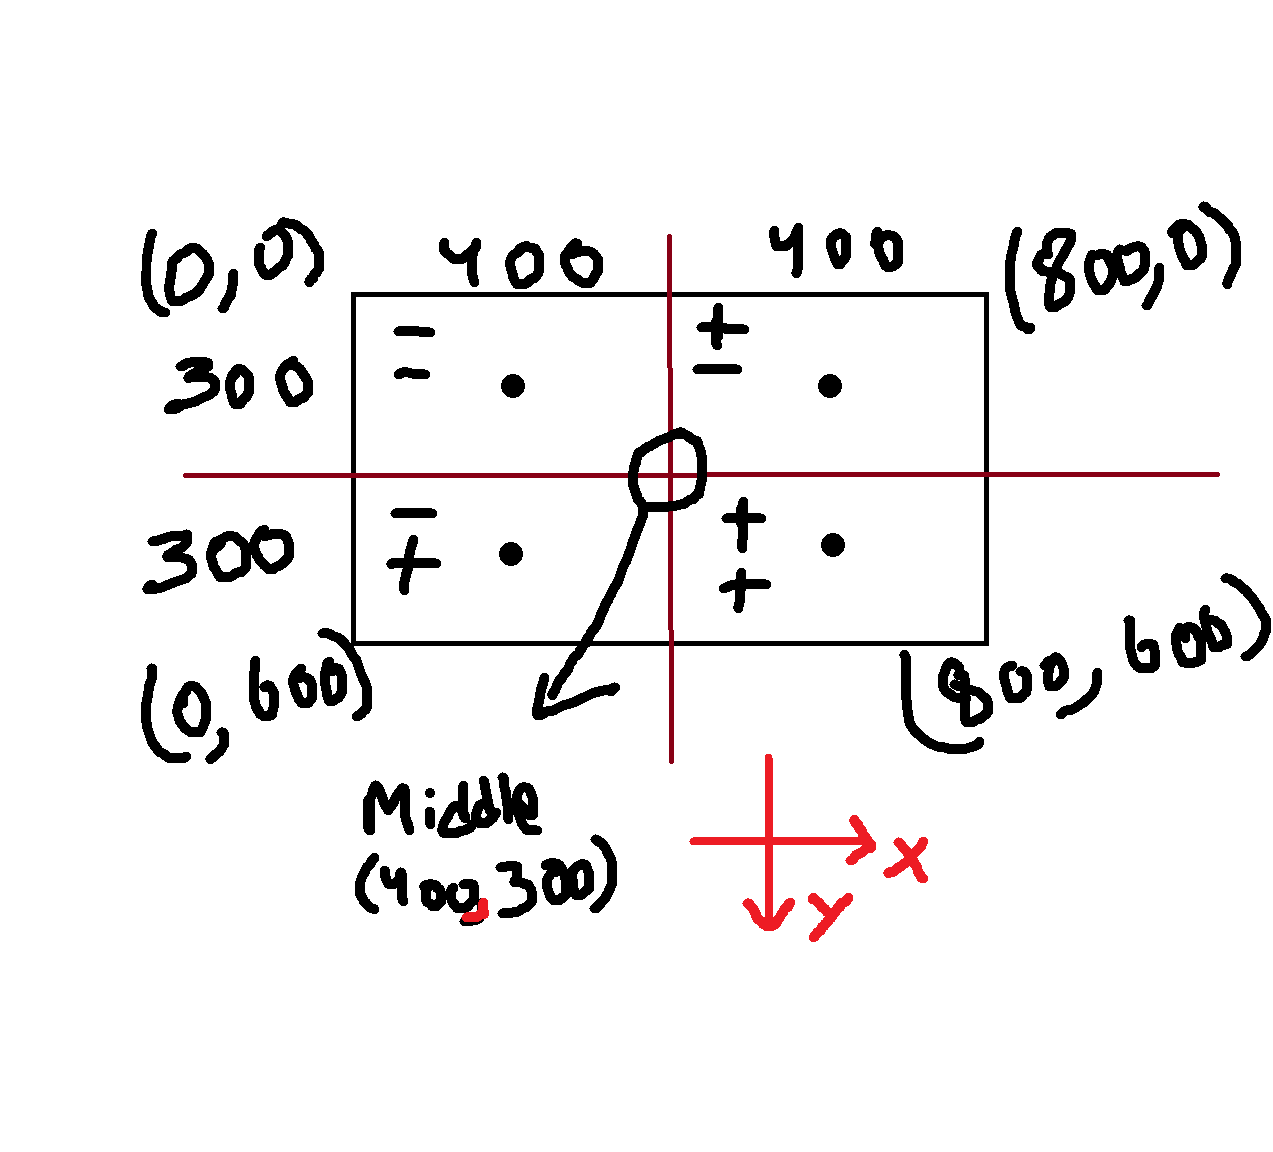 (0,0) 400 400 (800,0)
300
- +
- -
300
- +
+ +
(0,600) (800,600)
Middle
(400,300)
x
y